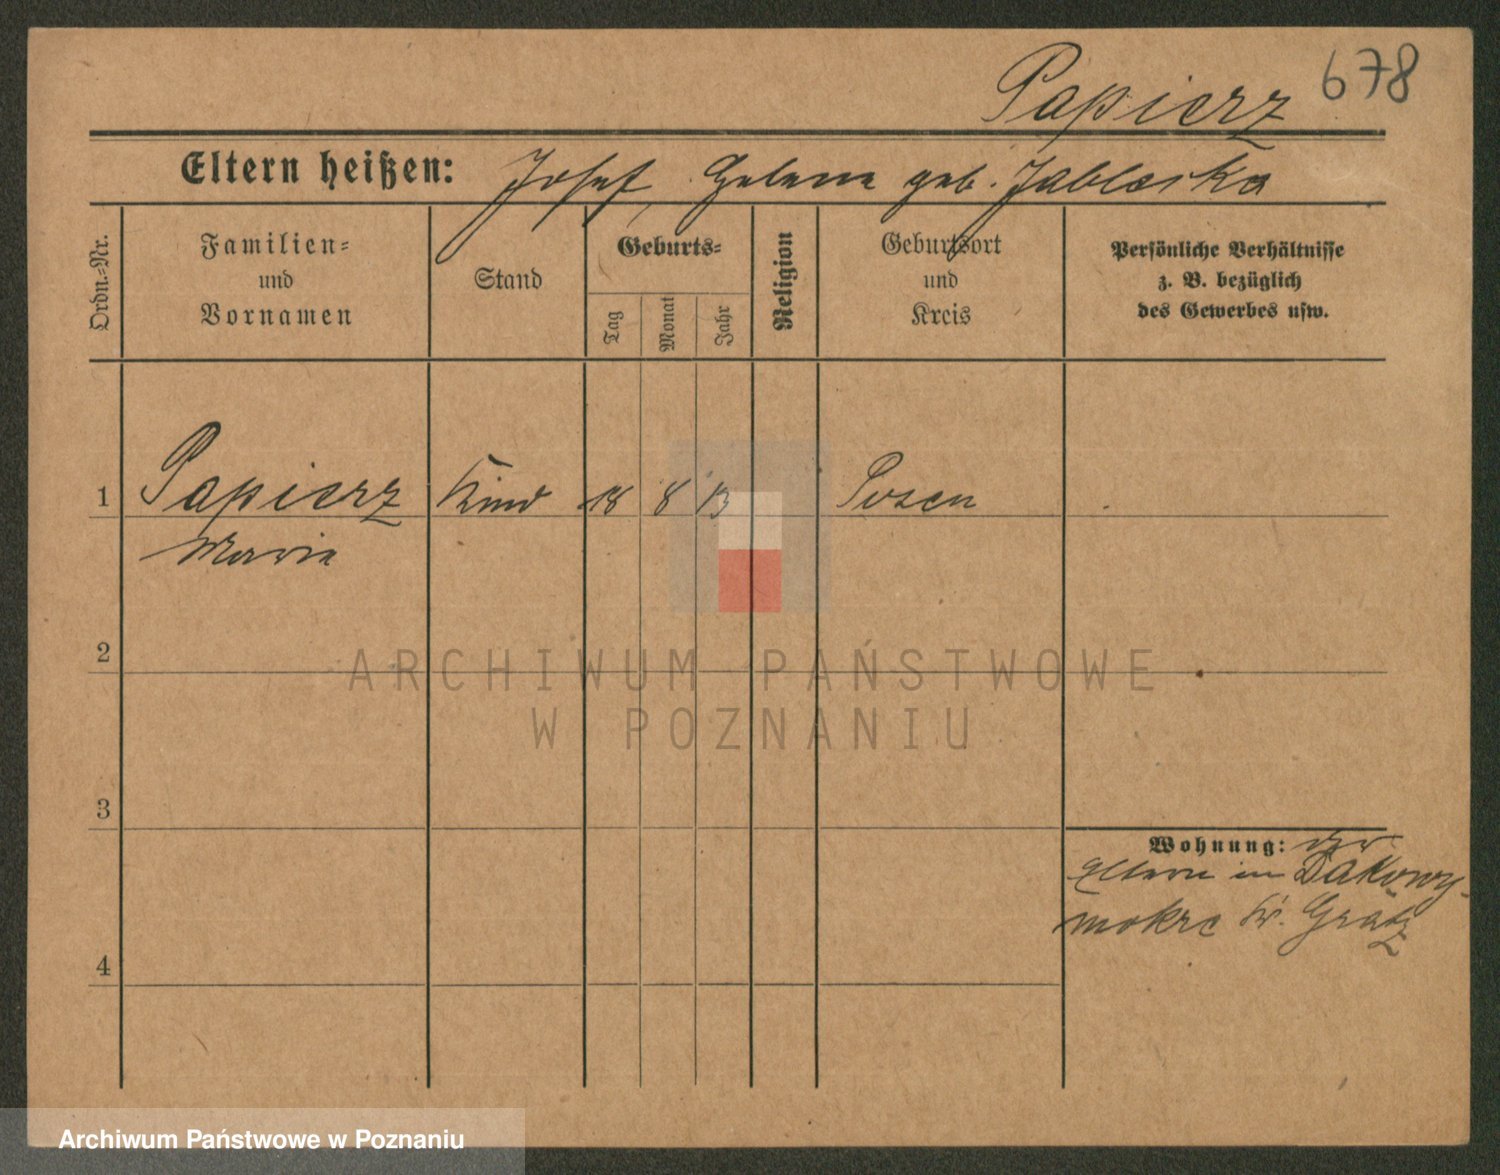 Papierz 678
Eltern heißen: Josef, Helene geb. Jablonska
Ordn.-Nr.
Familien-
und
Vornamen
Stand
Geburts-
Tag
Monat
Jahr
Religion
Geburtsort
und
Kreis
Persönliche Verhältnisse
z. B. bezüglich
des Gewerbes usw.
1 Papierz Kind 18 8 13 Posen
Marie
2
ARCHIWUM PAŃSTWOWE
W POZNANIU
3
Wohnung: der
Eltern in Dakowy-
mokre Kr. Grätz
4
Archiwum Państwowe w Poznaniu